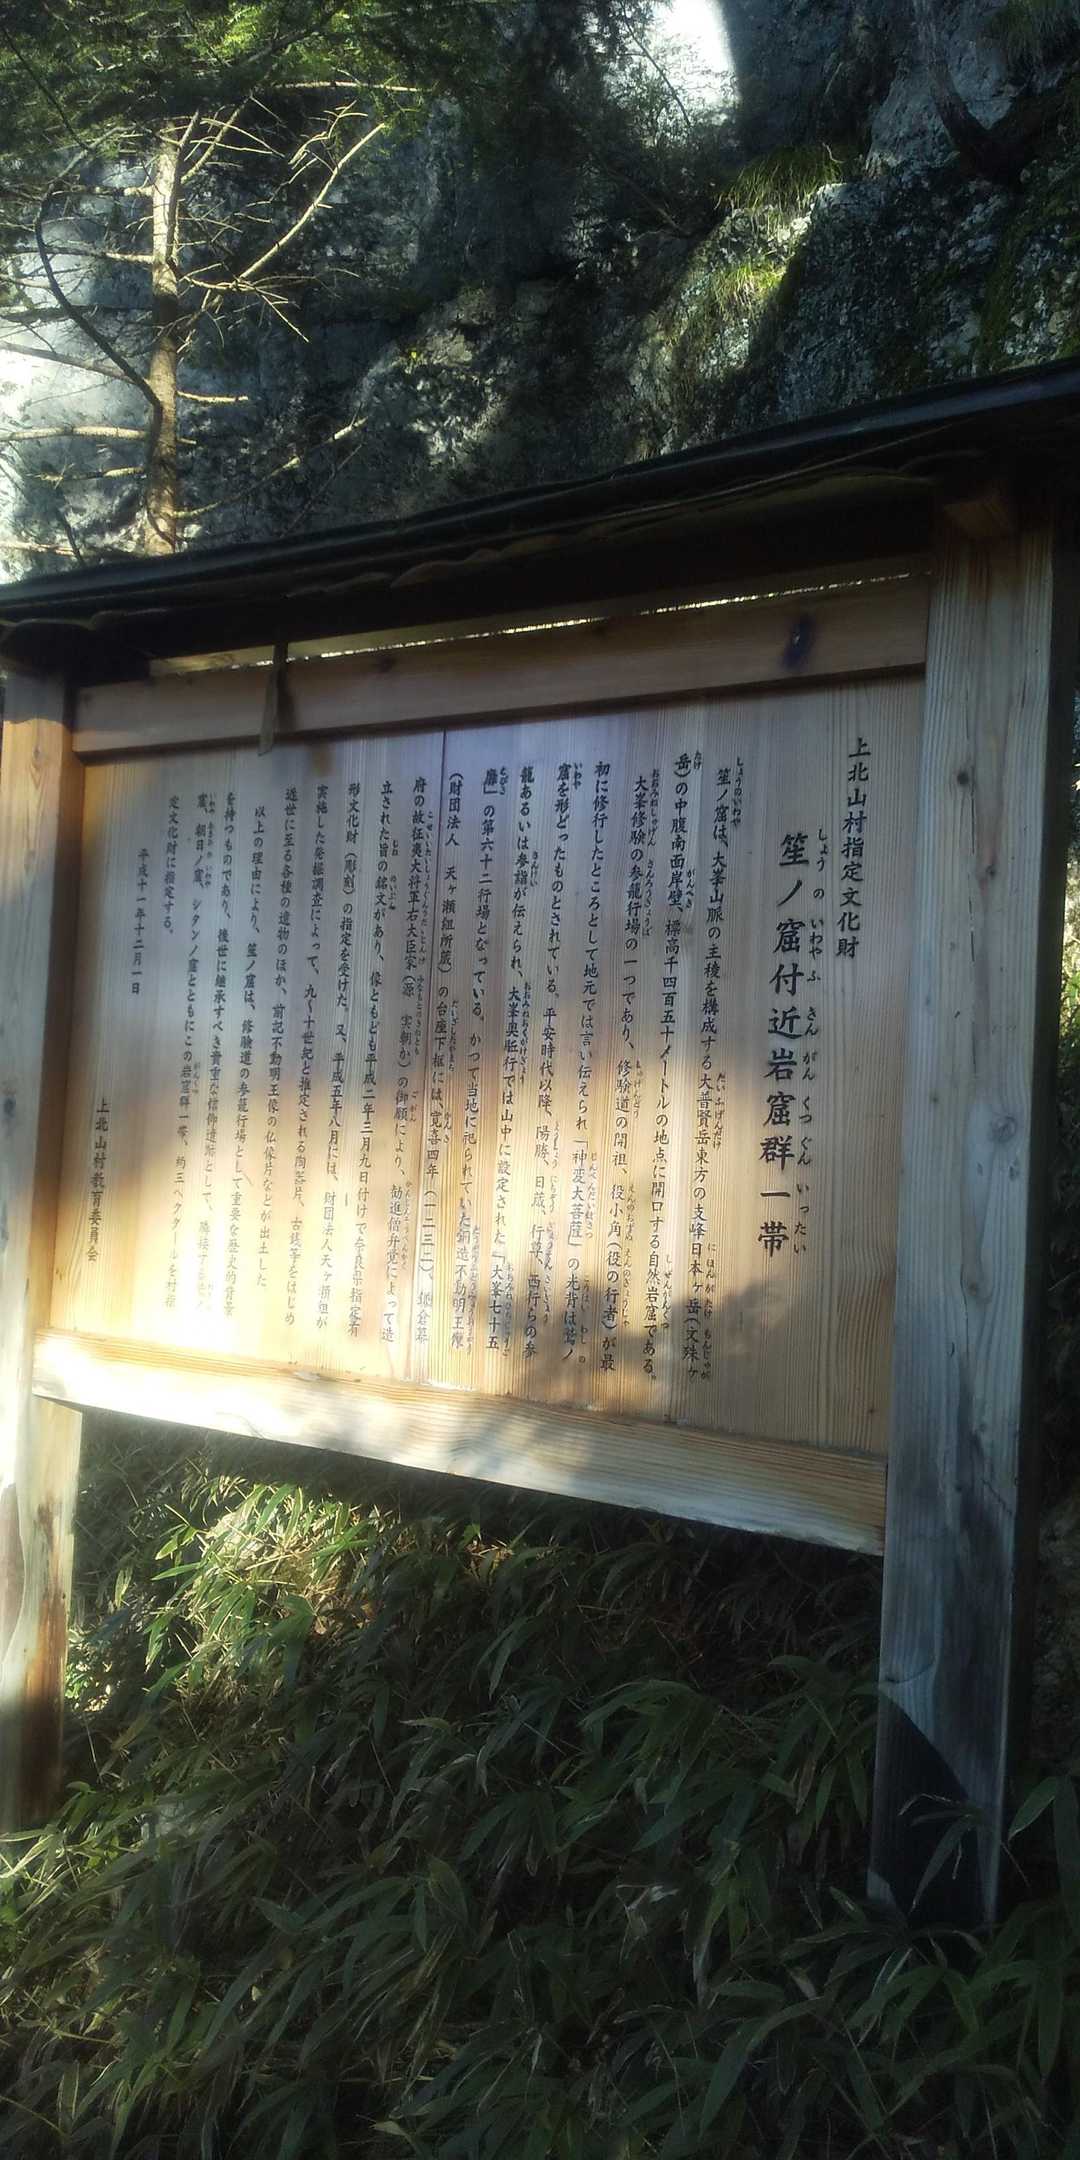 上北山村指定文化財
笙ノ窟付近岩窟群一帯
笙ノ窟は、大峯山脈の主稜を構成する大普賢岳東方の支峰日本ヶ岳(文殊ヶ
岳)の中腹南面岸壁、標高千四百五十メートルの地点に開口する自然岩窟である。
大峯修験の参籠行場の一つであり、修験道の開祖、役小角(役の行者)が最
初に修行したところとして地元では言い伝えられ「神変大菩薩」の光背は鷲ノ
窟を形どったものとされている。平安時代以降、陽勝、日蔵、行尊、西行らの参
籠あるいは参詣が伝えられ、大峯奥駈行では山中に設定された「大峯七十五
靡」の第六十二行場となっている。かつて当地に祀られていた銅造不動明王像
(財団法人 天ヶ瀬組所蔵)の台座下框には、寛喜四年(一二三二)、鎌倉幕
府の故征夷大将軍右大臣家(源 実朝か)の御願により、勧進僧弁覚によって造
立された旨の銘文があり、像ともども平成二年三月九日付けで奈良県指定有
形文化財(彫刻)の指定を受けた。又、平成五年八月には、財団法人天ヶ瀬組が
実施した発掘調査によって、九〜十世紀と推定される陶器片、古銭等をはじめ
近世に至る各種の遺物のほか、前記不動明王像の仏像片などが出土した
以上の理由により、笙ノ窟は、修験道の参籠行場として重要な歴史的背景
を持つものであり、後世に継承すべき貴重な信仰遺跡として、隣接する
窟、朝日ノ窟、シタンノ窟とともにこの岩窟群一帯、約三ヘクタールを村指
定文化財に指定する。
平成十一年十二月一日
上北山村教育委員会